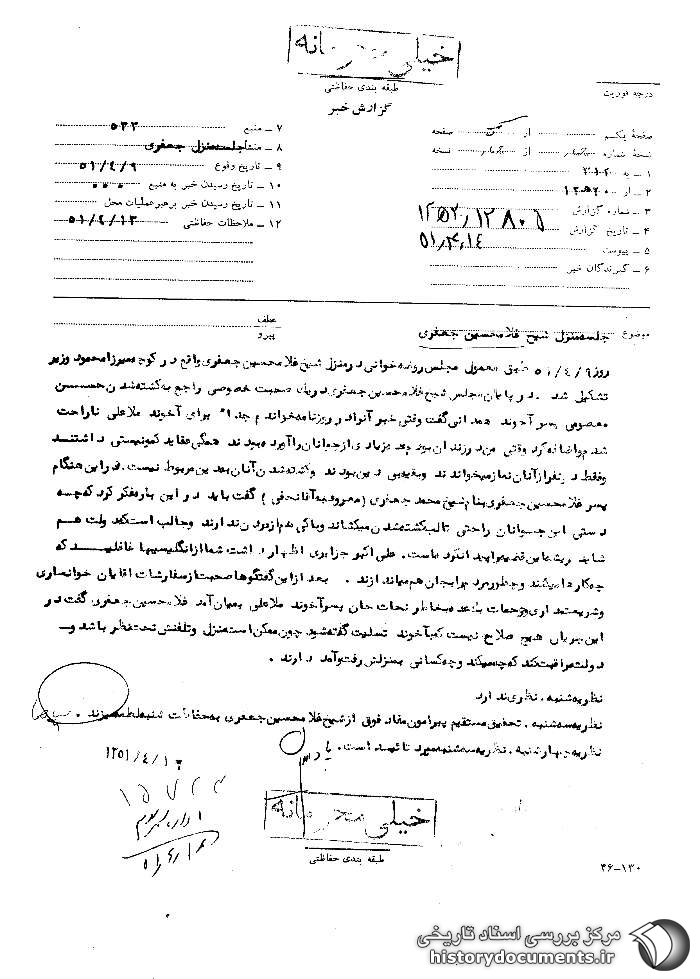 خیلی محرمانه
طبقه بندی حفاظتی
گزارش خبر
درجه فوریت
صفحه یکم از یک صفحه
نسخه شماره یکم از یکم نسخه
۱ ــ به ۳۱۲
۲ ــ از ۲۰ ﻫ ۱۲
۳ ــ شماره گزارش
۴ ــ تاریخ گزارش ۵۱٫۴٫۱۴
۵ ــ پیوست
۶ ــ گیرندگان خبر
۷ ــ منبع ۵۳۳
۸ ــ منشأ جلسه منزل جعفری
۹ ــ تاریخ وقوع ۵۱/۴/۹
۱۰ ــ تاریخ رسیدن خبر به منبع ۰۰۰
۱۱ ــ تاریخ رسیدن خبر به رهبر عملیات محل
۱۲ ــ ملاحظات حفاظتی ۵۱/۴/۱۳
موضوع جلسه منزل شیخ غلامحسین جعفری
عطف
پیرو
روز ۵۱/۴/۹ طبق معمول مجلس روضه خوانی در منزل شیخ غلامحسین جعفری واقع در کوچه میرزا محمود وزیر
تشکیل شد . در پایان مجلس شیخ غلامحسین جعفری در یک صحبت خصوصی راجع به کشته شدن حسن
معصومی پسر آخوند همدانی گفت وقتی خبر آنرا در روزنامه خواندم برای آخوند ملاعلی ناراحت
شدم و اضافه کرد وقتی من در زندان بودم عده زیادی از جوانان را آورده بودند همگی عقاید کمونیستی داشتند
و فقط دو نفر از آنان نماز میخواندند و بقیه بی دین بودند و کشته شدن آنان به دین مربوط نیست . در این هنگام
پسر غلامحسین جعفری بنام شیخ محمد جعفری (معروف به آقا نجفی) گفت باید در این باره فکر کرد که چه
دستی این جوانان را حتی تا لب کشته شدن میکشاند و باکی هم از مردن ندارند و جالب است که دولت هم
شاید ریشه این قضیه را پیدا نکرده است . علی اکبر جزایری اظهار داشت شما از انگلیسیها غافلید که
چه کارها میکنند و چطور مردم را بجان هم میاندازند . بعد از این گفتگوها صحبت از سفارشات آقایان خوانساری
و شریعتمداری و زحمات یک عده بخاطر نجات جان پسر آخوند ملاعلی بمیان آمد غلامحسین جعفری گفت در
این جریان هیچ صلاح نیست که به آخوند تسلیت گفته شود چون ممکن است منزل و تلفنش تحت نظر باشد و ــ
دولت مراقبت کند که چه میکند و چه کسانی بمنزلش رفت و آمد دارند .
نظریه شنبه . نظری ندارد
نظریه سه شنبه . تحقیق مستقیم پیرامون مفاد فوق از شیخ غلامحسین جعفری به حفاظت شنبه لطمه میزند .
نظریه چهارشنبه . نظریه سه شنبه مورد تائید است .
۱۳۵۱/۴/۱۰
خیلی محرمانه
طبقه بندی حفاظتی
۳۶-۱۳۰
مرکز بررسی اسناد تاریخی
historydocuments.ir